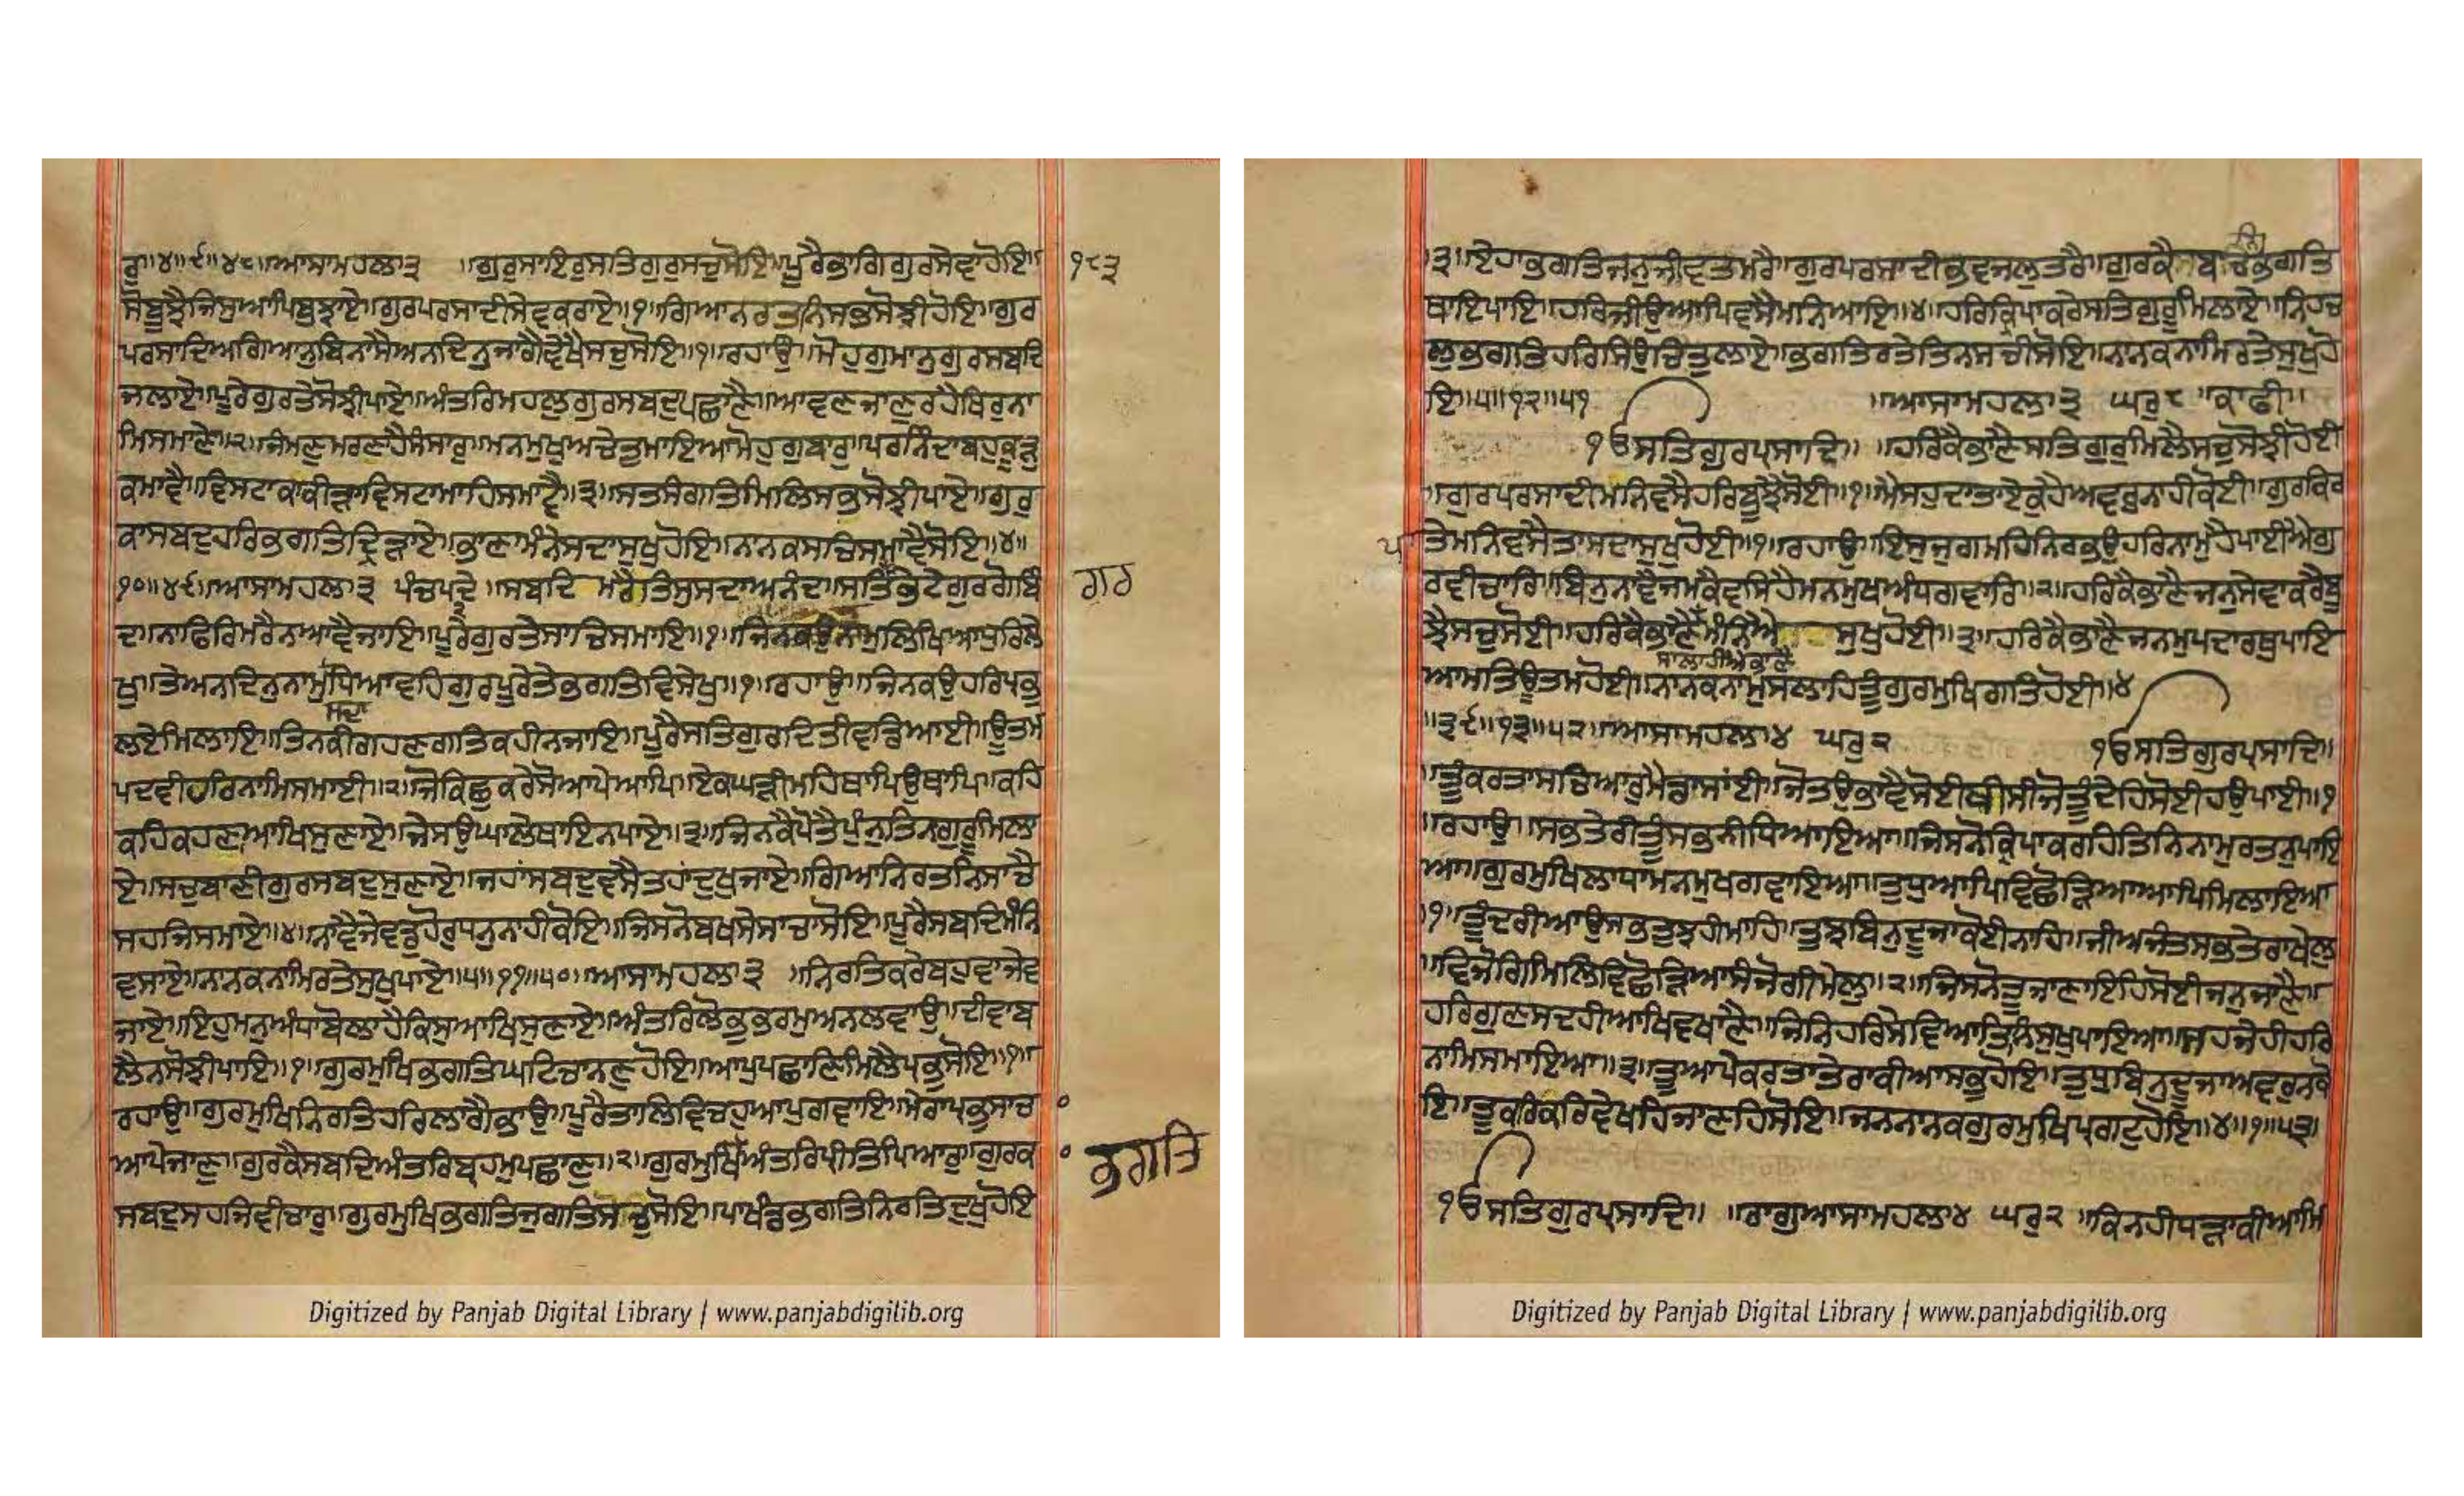 ਰੁ॥੪॥੯॥੪੮॥ਆਸਾਮਹਲਾ੩ ॥ਗੁਰੁਸਾਇਰੁਸਤਿਗੁਰੁਸਚੁਸੋਇ॥ਪੂਰੈਭਾਗਿਗੁਰਸੇਵਾਹੋਇ॥
੧੮੩
ਸੋਬੂਝੈਜਿਸੁਆਪਿਬੁਝਾਏ॥ਗੁਰਪਰਸਾਦੀਸੇਵਕਰਾਏ॥੧॥ਗਿਆਨਰਤਨਿਸਭਸੋਝੀਹੋਇ॥ਗੁਰ
ਪਰਸਾਦਿਅਗਿਆਨੁਬਿਨਾਸੈਅਨਦਿਨੁਜਾਗੈਵੇਖੈਸਚੁਸੋਇ॥੧॥ਰਹਾਉ॥ਮੋਹੁਗੁਮਾਨੁਗੁਰਸਬਦਿ
ਜਲਾਏ॥ਪੂਰੇਗੁਰਤੇਸੋਝੀਪਾਏ॥ਅੰਤਰਿਮਹਲੁਗੁਰਸਬਦੁਪਛਾਣੈ॥ਆਵਣਜਾਣੁਰਹੈਥਿਰੁਨਾ
ਮਿਸਮਾਣੇ॥੨॥ਜੰਮਣੁਮਰਣਹੈਸੰਸਾਰੁ॥ਮਨਮੁਖੁਅਚੇਤੁਮਾਇਆਮੋਹੁਗੁਬਾਰੁ॥ਪਰਨਿੰਦਾਬਹੁਕੂੜੁ
ਕਮਾਵੈ॥ਵਿਸਟਾਕਾਕੀੜਾਵਿਸਟਾਮਾਹਿਸਮਾਵੈ॥੩॥ਸਤਸੰਗਤਿਮਿਲਿਸਭਸੋਝੀਪਾਏ॥ਗੁਰ
ਕਾਸਬਦੁਹਰਿਭਗਤਿਦ੍ਰਿੜਾਏ॥ਭਾਣਾਮੰਨੇਸਦਾਸੁਖੁਹੋਇ॥ਨਾਨਕਸਾਚਿਸਮਾਵੈਸੋਇ॥੪॥
੧੦॥੪੯॥ਆਸਾਮਹਲਾ੩ ਪੰਚਪਦੇ ॥ਸਬਦਿ ਮਰੈਤਿਸੁਸਦਾਅਨੰਦਾ॥ਸਤਿਗੁਰਭੇਟੇਗੁਰਗੋਬਿੰ
ਗਰ
ਦਾ॥ਨਾਫਿਰਿਮਰੈਨਆਵੈਜਾਇ॥ਪੂਰੇਗੁਰਤੇਸਾਚਿਸਮਾਇ॥੧॥ਜਿਨਕਉਨਾਮੁਲਿਖਿਆਧੁਰਿਲੇ
ਖੁ॥ਤੇਅਨਦਿਨੁਨਾਮੁਧਿਆਵਹਿਗੁਰਪੂਰੇਤੇਭਗਤਿਵਿਸੇਖੁ॥੧॥ਰਹਾਉ॥ਜਿਨਕਉਹਰਿਪ੍ਰਭੁ
ਸਦਾ
ਲਏਮਿਲਾਇ॥ਤਿਨਕੀਗਹਣਗਤਿਕਹੀਨਜਾਇ॥ਪੂਰੈਸਤਿਗੁਰਦਿਤੀਵਡਿਆਈ॥ਊਤਮ
ਪਦਵੀਹਰਿਨਾਮਿਸਮਾਈ॥੨॥ਜੋਕਿਛੁਕਰੇਸੋਆਪੇਆਪਿ॥ਏਕਘੜੀਮਹਿਥਾਪਿਉਥਾਪਿ॥ਕਹਿ
ਕਹਿਕਹਣਾਆਖਿਸੁਣਾਏ॥ਜੇਸਉਘਾਲੇਥਾਇਨਪਾਏ॥੩॥ਜਿਨਕੈਪੋਤੈਪੁੰਨੁਤਿਨਗੁਰੂਮਿਲਾ
ਏ॥ਸਚੁਬਾਣੀਗੁਰਸਬਦੁਸੁਣਾਏ॥ਜਹਾਂਸਬਦੁਵਸੈਤਹਾਂਦੁਖੁਜਾਏ॥ਗਿਆਨਿਰਤਨਿਸਾਚੈ
ਸਹਜਿਸਮਾਏ॥੪॥ਨਾਵੈਜੇਵਡੁਹੋਰੁਧਨੁਨਾਹੀਕੋਇ॥ਜਿਸਨੋਬਖਸੇਸਾਚਾਸੋਇ॥ਪੂਰੈਸਬਦਿਮੰਨਿ
ਵਸਾਏ॥ਨਾਨਕਨਾਮਿਰਤੇਸੁਖੁਪਾਏ॥੫॥੧੧॥੫੦॥ਆਸਾਮਹਲਾ੩ ॥ਨਿਰਤਿਕਰੇਬਹੁਵਾਜੇਵ
ਜਾਏ॥ਇਹੁਮਨੁਅੰਧਾਬੋਲਾਹੈਕਿਸੁਆਖਿਸੁਣਾਏ॥ਅੰਤਰਿਲੋਭੁਭਰਮੁਅਨਲਵਾਉ॥ਦੀਵਾਬ
ਲੈਨਸੋਝੀਪਾਇ॥੧॥ਗੁਰਮੁਖਿਭਗਤਿਘਟਿਚਾਨਣੁਹੋਇ॥ਆਪੁਪਛਾਣਿਮਿਲੈਪ੍ਰਭੁਸੋਇ॥੧॥
ਰਹਾਉ॥ਗੁਰਮੁਖਿਨਿਰਤਿਹਰਿਲਾਗੈਭਾਉ॥ਪੂਰੈਤਾਲਿਵਿਚਹੁਆਪੁਗਵਾਇ॥ਮੇਰਾਪ੍ਰਭੁਸਾਚ
ਆਪੇਜਾਣੁ॥ਗੁਰਕੈਸਬਦਿਅੰਤਰਿਬ੍ਰਹਮੁਪਛਾਣੁ॥੨॥ਗੁਰਮੁਖਿਅੰਤਰਿਪ੍ਰੀਤਿਪਿਆਰੁ॥ਗੁਰਕ
ਭਗਤਿ
ਸਬਦੁਸਹਜਿਵੀਚਾਰੁ॥ਗੁਰਮੁਖਿਭਗਤਿਜੁਗਤਿਸਚੁਸੋਇ॥ਪਾਖੰਡਭਗਤਿਨਿਰਤਿਦੁਖੁਹੋਇ
Digitized by Panjab Digital Library | www.panjabdigilib.org
੩॥ਏਹਾਭਗਤਿਜਨੁਜੀਵਤਮਰੈ॥ਗੁਰਪਰਸਾਦੀਭਵਜਲੁਤਰੈ॥ਗੁਰਕੈ ਬਚਨਿਭਗਤਿ
ਥਾਇਪਾਇ॥ਹਰਿਜੀਉਆਪਿਵਸੈਮਨਿਆਇ॥੪॥ਹਰਿਕ੍ਰਿਪਾਕਰੇਸਤਿਗੁਰੂਮਿਲਾਏ॥ਨਿਹਚ
ਲਭਗਤਿਹਰਿਸਿਉਚਿਤੁਲਾਏ॥ਭਗਤਿਰਤੇਤਿਨਸਚੀਸੋਇ॥ਨਾਨਕਨਾਮਿਰਤੇਸੁਖੁਹੋ
ਇ॥੫॥੧੨॥੫੧ ॥ਆਸਾਮਹਲਾ੩ ਘਰੁ੮ ॥ਕਾਫੀ॥
ੴਸਤਿਗੁਰਪ੍ਰਸਾਦਿ॥ ॥ਹਰਿਕੈਭਾਣੈਸਤਿਗੁਰੁਮਿਲੈਸਚੁਸੋਝੀਹੋਈ
॥ਗੁਰਪਰਸਾਦੀਮਨਿਵਸੈਹਰਿਬੂਝੈਸੋਈ॥੧॥ਮੈਸਹੁਦਾਤਾਏਕੁਹੈਅਵਰੁਨਾਹੀਕੋਈ॥ਗੁਰਕਿਰ
ਪਾ ਤੇਮਨਿਵਸੈਤਾਸਦਾਸੁਖੁਹੋਈ॥੧॥ਰਹਾਉ॥ਇਸੁਜੁਗਮਹਿਨਿਰਭਉਹਰਿਨਾਮੁਹੈਪਾਈਐਗੁ
ਰਵੀਚਾਰਿ॥ਬਿਨੁਨਾਵੈਜਮਕੈਵਸਿਹੈਮਨਮੁਖਅੰਧਗਵਾਰਿ॥੨॥ਹਰਿਕੈਭਾਣੈਜਨੁਸੇਵਾਕਰੈਬੂ
ਝੈਸਚੁਸੋਈ॥ਹਰਿਕੈਭਾਣੈ ਮੰਨਿਐ ਸੁਖੁਹੋਈ॥੩॥ਹਰਿਕੈਭਾਣੈਜਨਮੁਪਦਾਰਥੁਪਾਇ
ਸਾਲਾਹੀਐਭਾਣੈ
ਆਮਤਿਊਤਮਹੋਈ॥ਨਾਨਕਨਾਮੁਸਲਾਹਿਤੂੰਗੁਰਮੁਖਿਗਤਿਹੋਈ॥੪
॥੩੯॥੧੩॥੫੨॥ਆਸਾਮਹਲਾ੪ ਘਰੁ੨ ੴਸਤਿਗੁਰਪ੍ਰਸਾਦਿ॥
॥ਤੂੰਕਰਤਾਸਚਿਆਰੁਮੈਡਾਸਾਂਈ॥ਜੋਤਉਭਾਵੈਸੋਈਥੀਸੀਜੋਤੂੰਦੇਹਿਸੋਈਹਉਪਾਈ॥੧
॥ਰਹਾਉ॥ਸਭਤੇਰੀਤੂੰਸਭਨੀਧਿਆਇਆ॥ਜਿਸਨੋਕ੍ਰਿਪਾਕਰਹਿਤਿਨਿਨਾਮੁਰਤਨੁਪਾਇ
ਆ॥ਗੁਰਮੁਖਿਲਾਧਾਮਨਮੁਖਗਵਾਇਆ॥ਤੁਧੁਆਪਿਵਿਛੋੜਿਆਆਪਿਮਿਲਾਇਆ
।੧॥ਤੂੰਦਰੀਆਉਸਭਤੁਝਹੀਮਾਹਿ॥ਤੁਝਬਿਨੁਦੂਜਾਕੋਈਨਾਹਿ॥ਜੀਅਜੰਤਸਭਤੇਰਾਖੇਲੁ
॥ਵਿਜੋਗਿਮਿਲਿਵਿਛੋੜਿਆਸੰਜੋਗੀਮੇਲੁ॥੨॥ਜਿਸਨੋਤੂਜਾਣਾਇਹਿਸੋਈਜਨੁਜਾਣੈ॥
ਹਰਿਗੁਣਸਦਹੀਆਖਿਵਖਾਣੈ॥ਜਿਨਿਹਰਿਸੇਵਿਆਤਿਨਿਸੁਖੁਪਾਇਆ॥ਸਹਜੇਹੀਹਰਿ
ਨਾਮਿਸਮਾਇਆ॥੩॥ਤੂਆਪੇਕਰਤਾਤੇਰਾਕੀਆਸਭੁਹੋਇ॥ਤੁਧੁਬਿਨੁਦੂਜਾਅਵਰੁਨਕੋ
ਇ॥ਤੂਕਰਿਕਰਿਵੇਖਹਿਜਾਣਹਿਸੋਇ॥ਜਨਨਾਨਕਗੁਰਮੁਖਿਪ੍ਰਗਟੁਹੋਇ॥੪॥੧॥੫੩।
ੴਸਤਿਗੁਰਪ੍ਰਸਾਦਿ॥ ॥ਰਾਗੁਆਸਾਮਹਲਾ੪ ਘਰੁ੨ ॥ਕਿਨਹੀਧੜਾਕੀਆਮਿ
Digitized by Panjab Digital Library | www.panjabdigilib.org